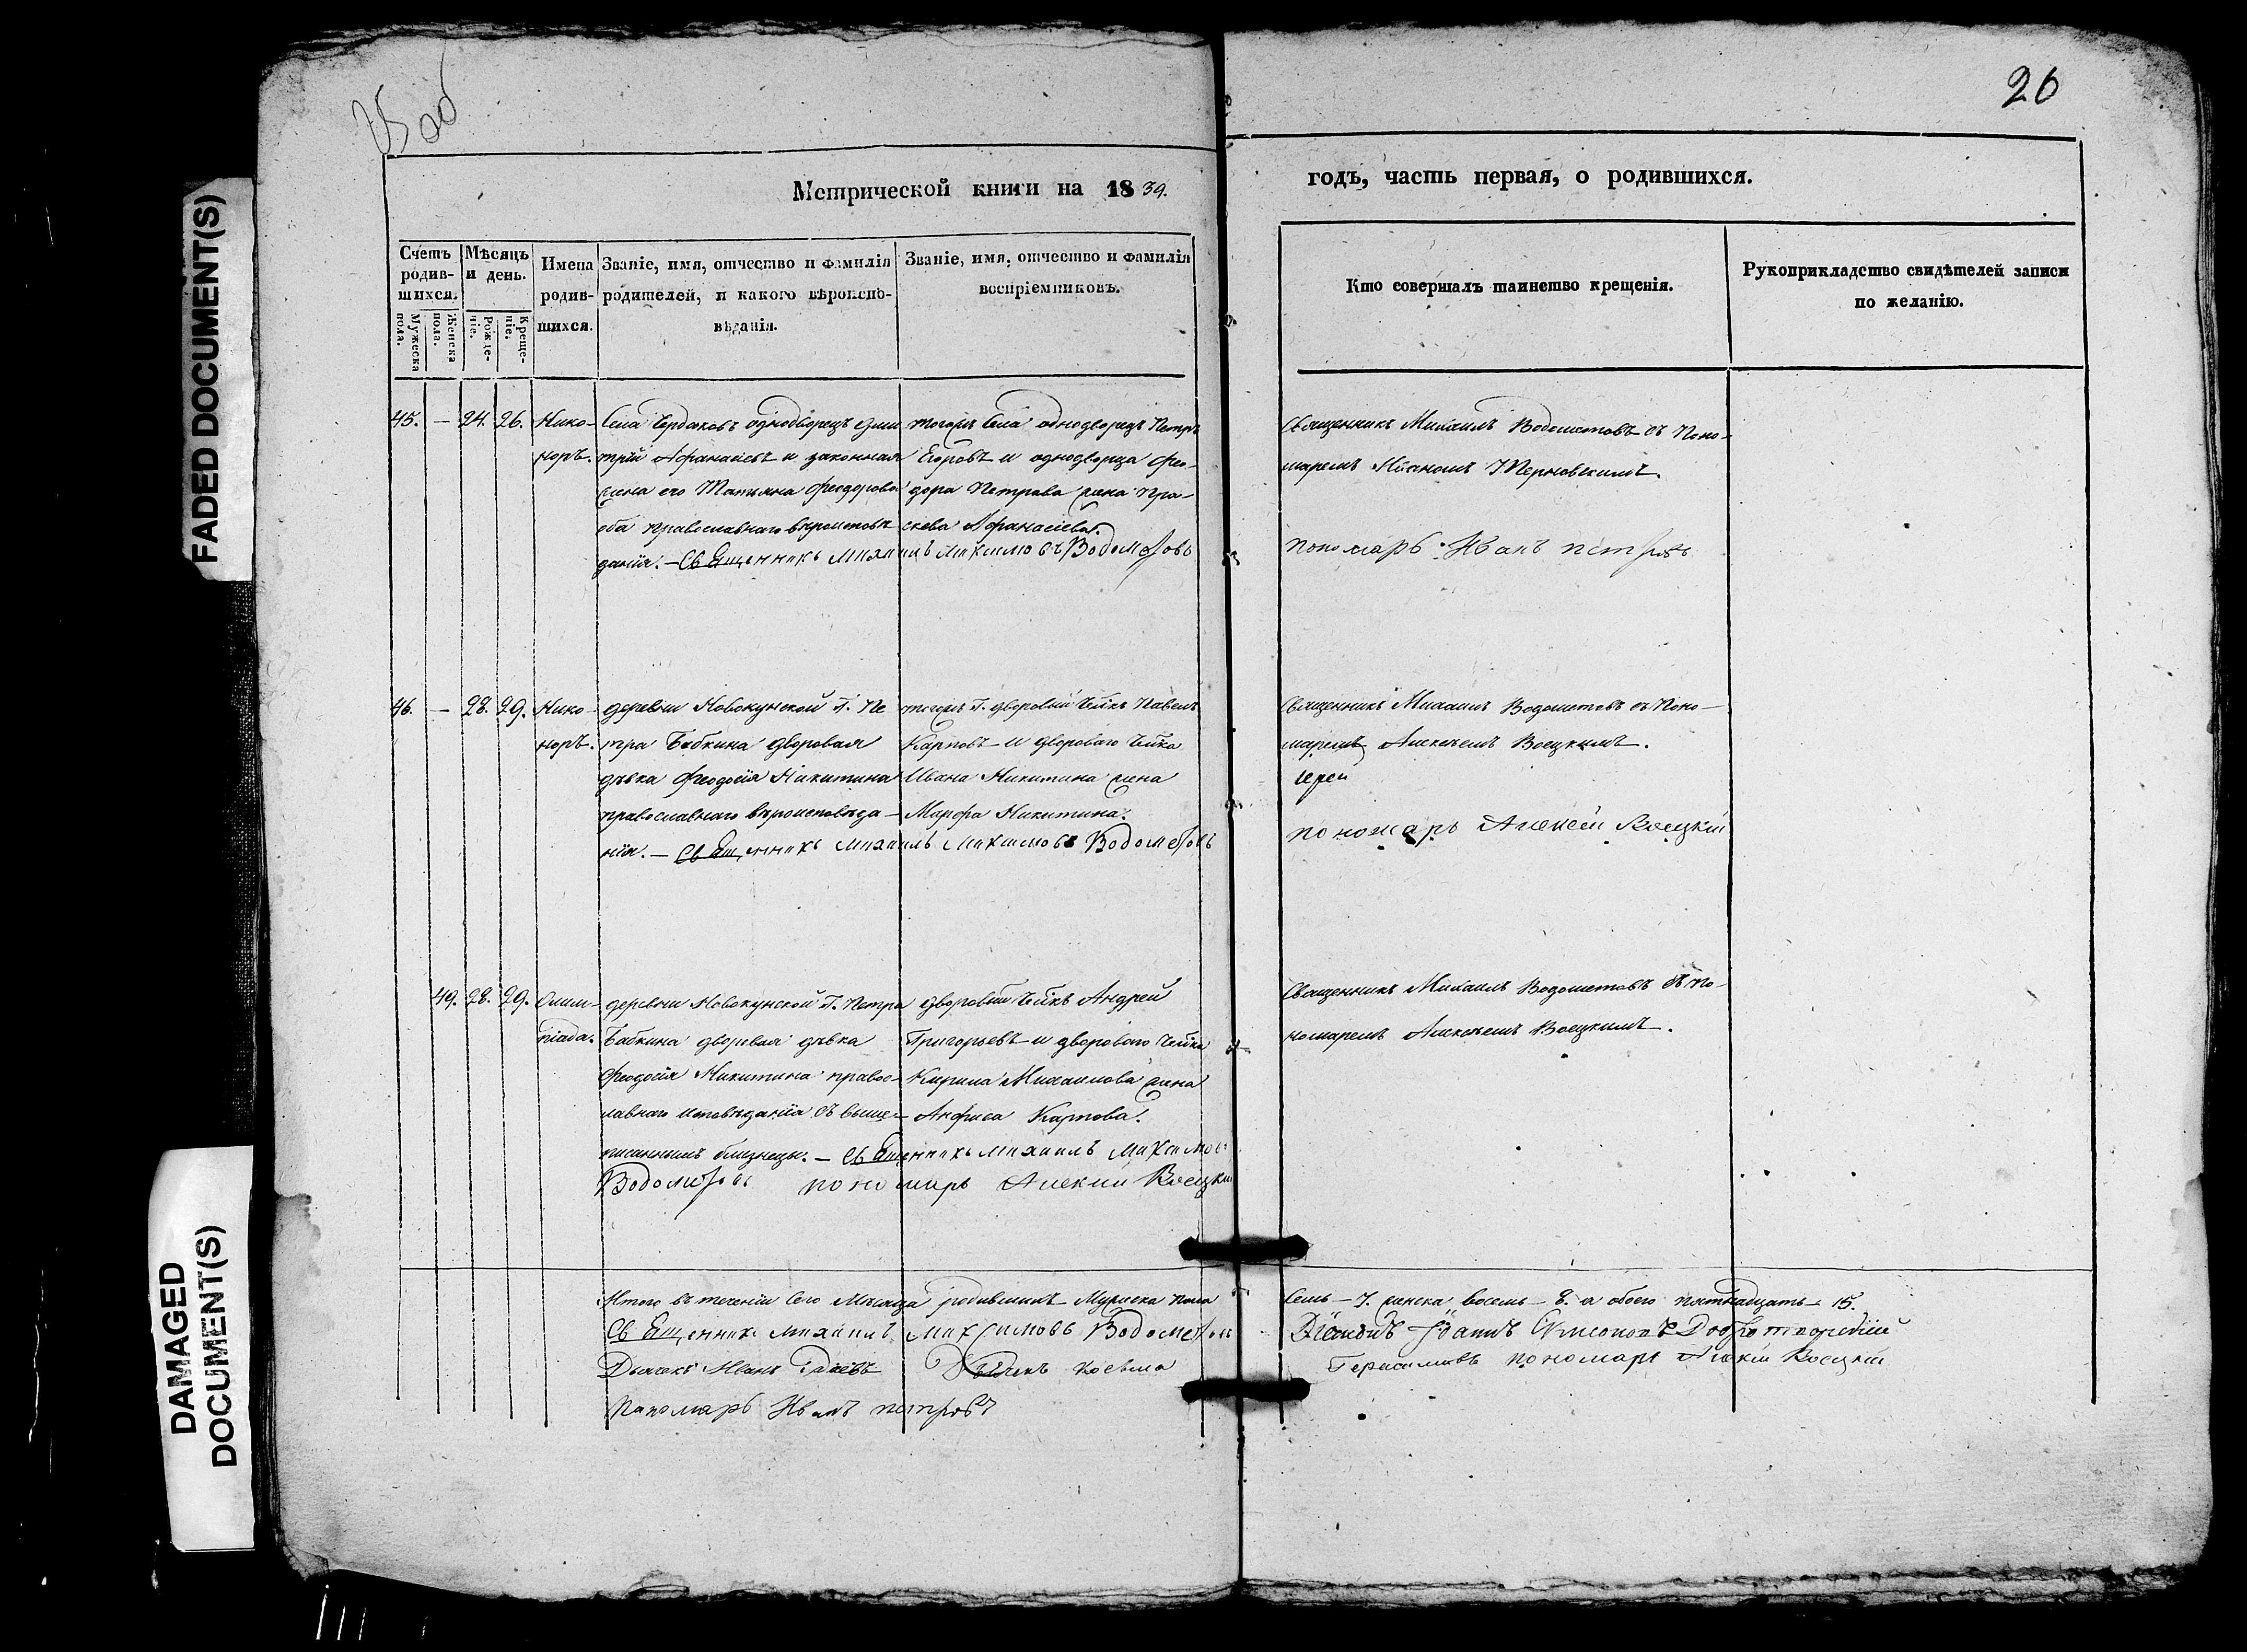 FADED DOCUMENT(S)
DAMAGED
DOCUMENT(S)
26
Метрической книги на 1839.
годъ, часть первая, о родившихся.
Счетъ родив-шихся.
Мужеска пола.
Женска пола.
Мѣсяцъ и день.
Рожде-ніе.
Креще-ніе.
Имена родив-шихся.
Званіе, имя, отчество и фамилія
родителей, и какого вѣроиспо-
вѣданія.
Званіе, имя, отчество и фамилія
воспріемниковъ.
Кто совершалъ таинство крещенія.
Рукоприкладство свидѣтелей записи
по желанію.
45. — 24. 26. Нико-
норъ.
Села однодворецъ Дми
трій Афанасіевъ и законная
жена его Татьяна Феодорова
оба православнаго вѣроисповѣ
данія. — Священникъ Михаилъ Максимовъ Водометовъ
тогожъ села однодворецъ Петръ
Егоровъ и однодворца Фео-
дора Петрова жена Пра-
скева Афанасіева.
Священникъ Михаилъ Водометовъ съ Поно-
маремъ Иваномъ Терновскимъ.
пономарь Иванъ петровъ
46. — 28. 29. Нико-
норъ.
деревни Новокунской Г. Пе
тра Бабкина дворовая
дѣвка Феодосія Никитина
православнаго вѣроисповѣда-
нія. — Священникъ Михаилъ Максимовъ Водометовъ
тогожъ Г. дворовый Челкъ Павелъ
Карповъ и двороваго Челка
Ивана Никитина жена
Марфа Никитина.
Священникъ Михаилъ Водометовъ съ Поно-
маремъ Алексѣемъ Воецкимъ.
іереи
пономарь Алексѣй Воецкій
49. 28. 29. Олим-
піада.
деревни Новокунской Г. Петра
Бабкина дворовая дѣвка
Феодосія Никитина правос-
лавнаго исповѣданія съ выше-
писаннымъ близнецы. — Священникъ Михаилъ Максимовъ
Водометовъ пономарь Алексѣй Воецкій
дворовый Челкъ Андрей
Григорьевъ и двороваго Челка
Кирила Михаилова жена
Анфиса Карпова.
Священникъ Михаилъ Водометовъ съ По-
номаремъ Алексѣемъ Воецкимъ.
Итого въ теченіи сего Мѣсяца родившихъ Мужеска пола
семь — 7. женска восемь — 8. а обоего пятнадцать — 15.
Священникъ Михаилъ Максимовъ Водометовъ
Діаконъ Іоаннъ Симеоновъ Добротворскій
Дьячекъ Иванъ Дьячекъ Косьма
Герасимовъ пономарь Алексѣй Воецкій
Пономарь Иванъ петровъ